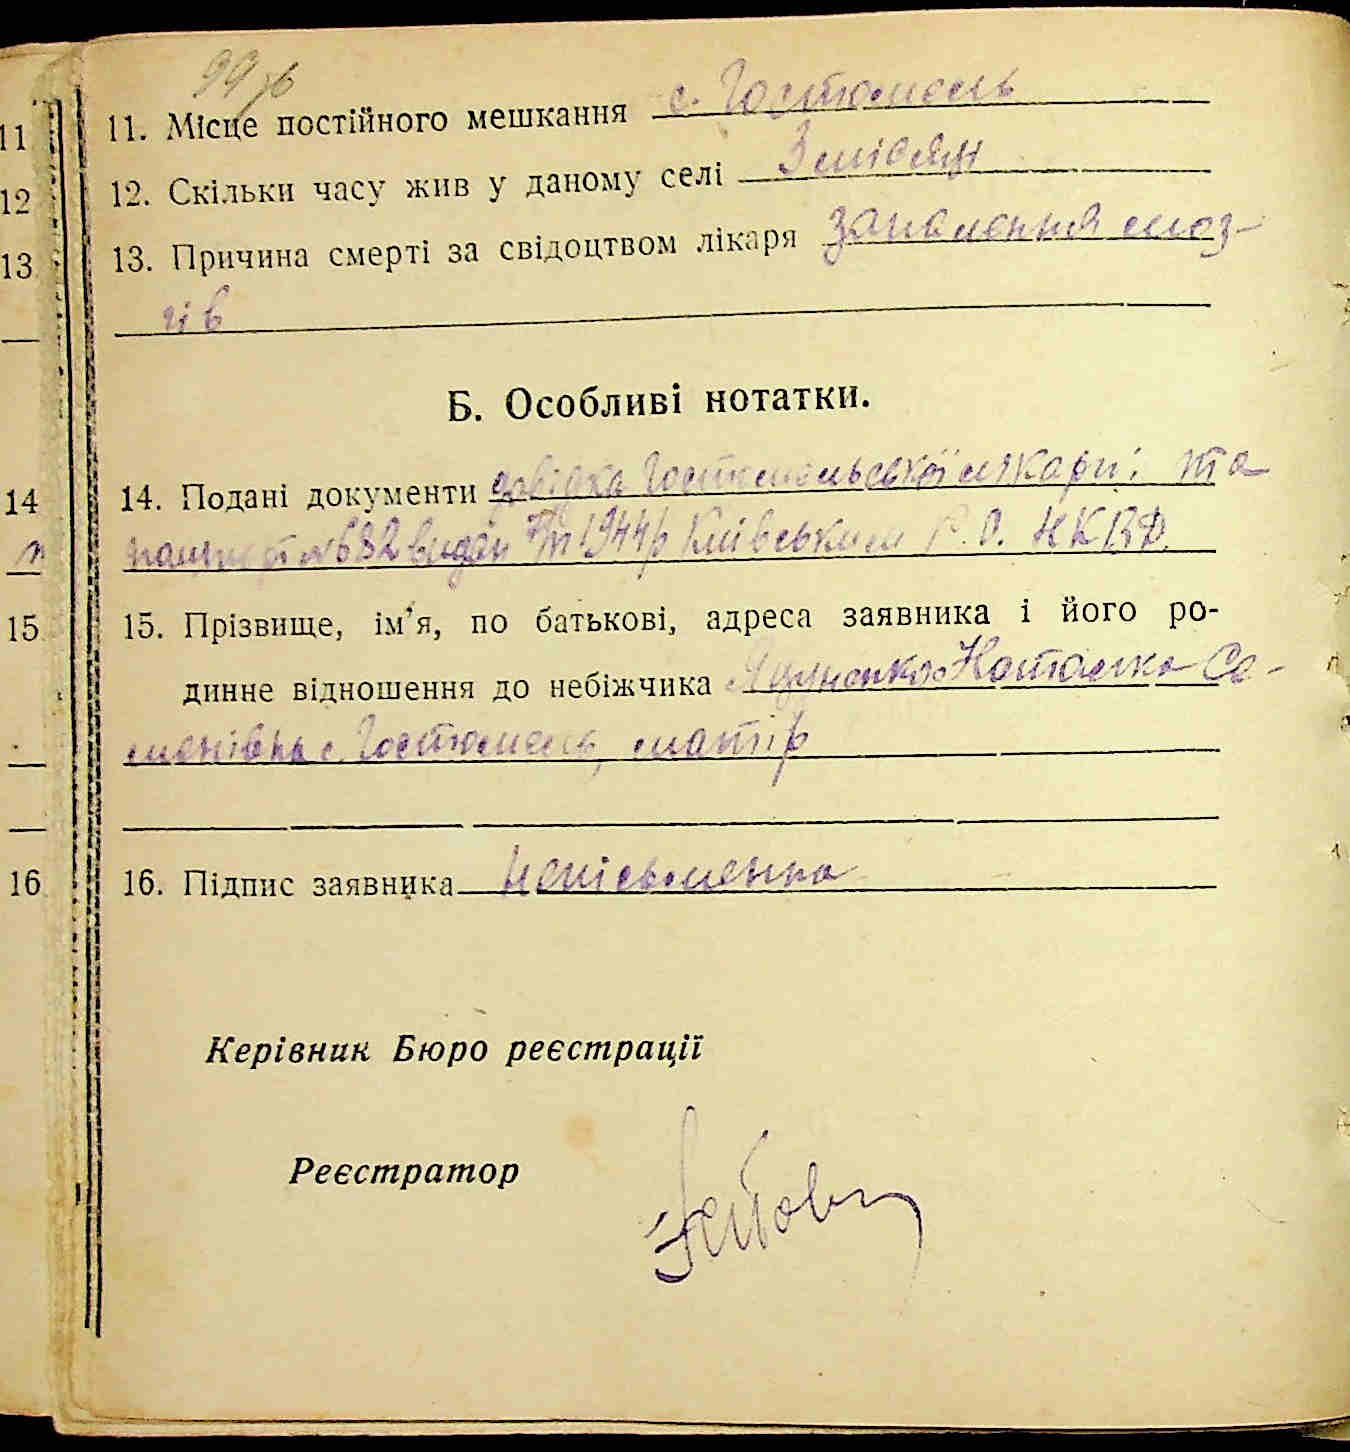 99 зв
11. Місце постійного мешкання с. Гостомель
12. Скільки часу жив у даному селі 3 місяці
13. Причина смерті за свідоцтвом лікаря запалення моз-
гів
Б. Особливі нотатки.
14. Подані документи довідка Гостомельської лікарні та
паспорт №682 видан 1944 р Київським Р.О. НКВД
15. Прізвище, ім'я, по батькові, адреса заявника і його ро-
динне відношення до небіжчика Наталка Се-
менівна с. Гостомель, матір
16. Підпис заявника неписьменна
Керівник Бюро реєстрації
Реєстратор
11
12
13
14
15
16